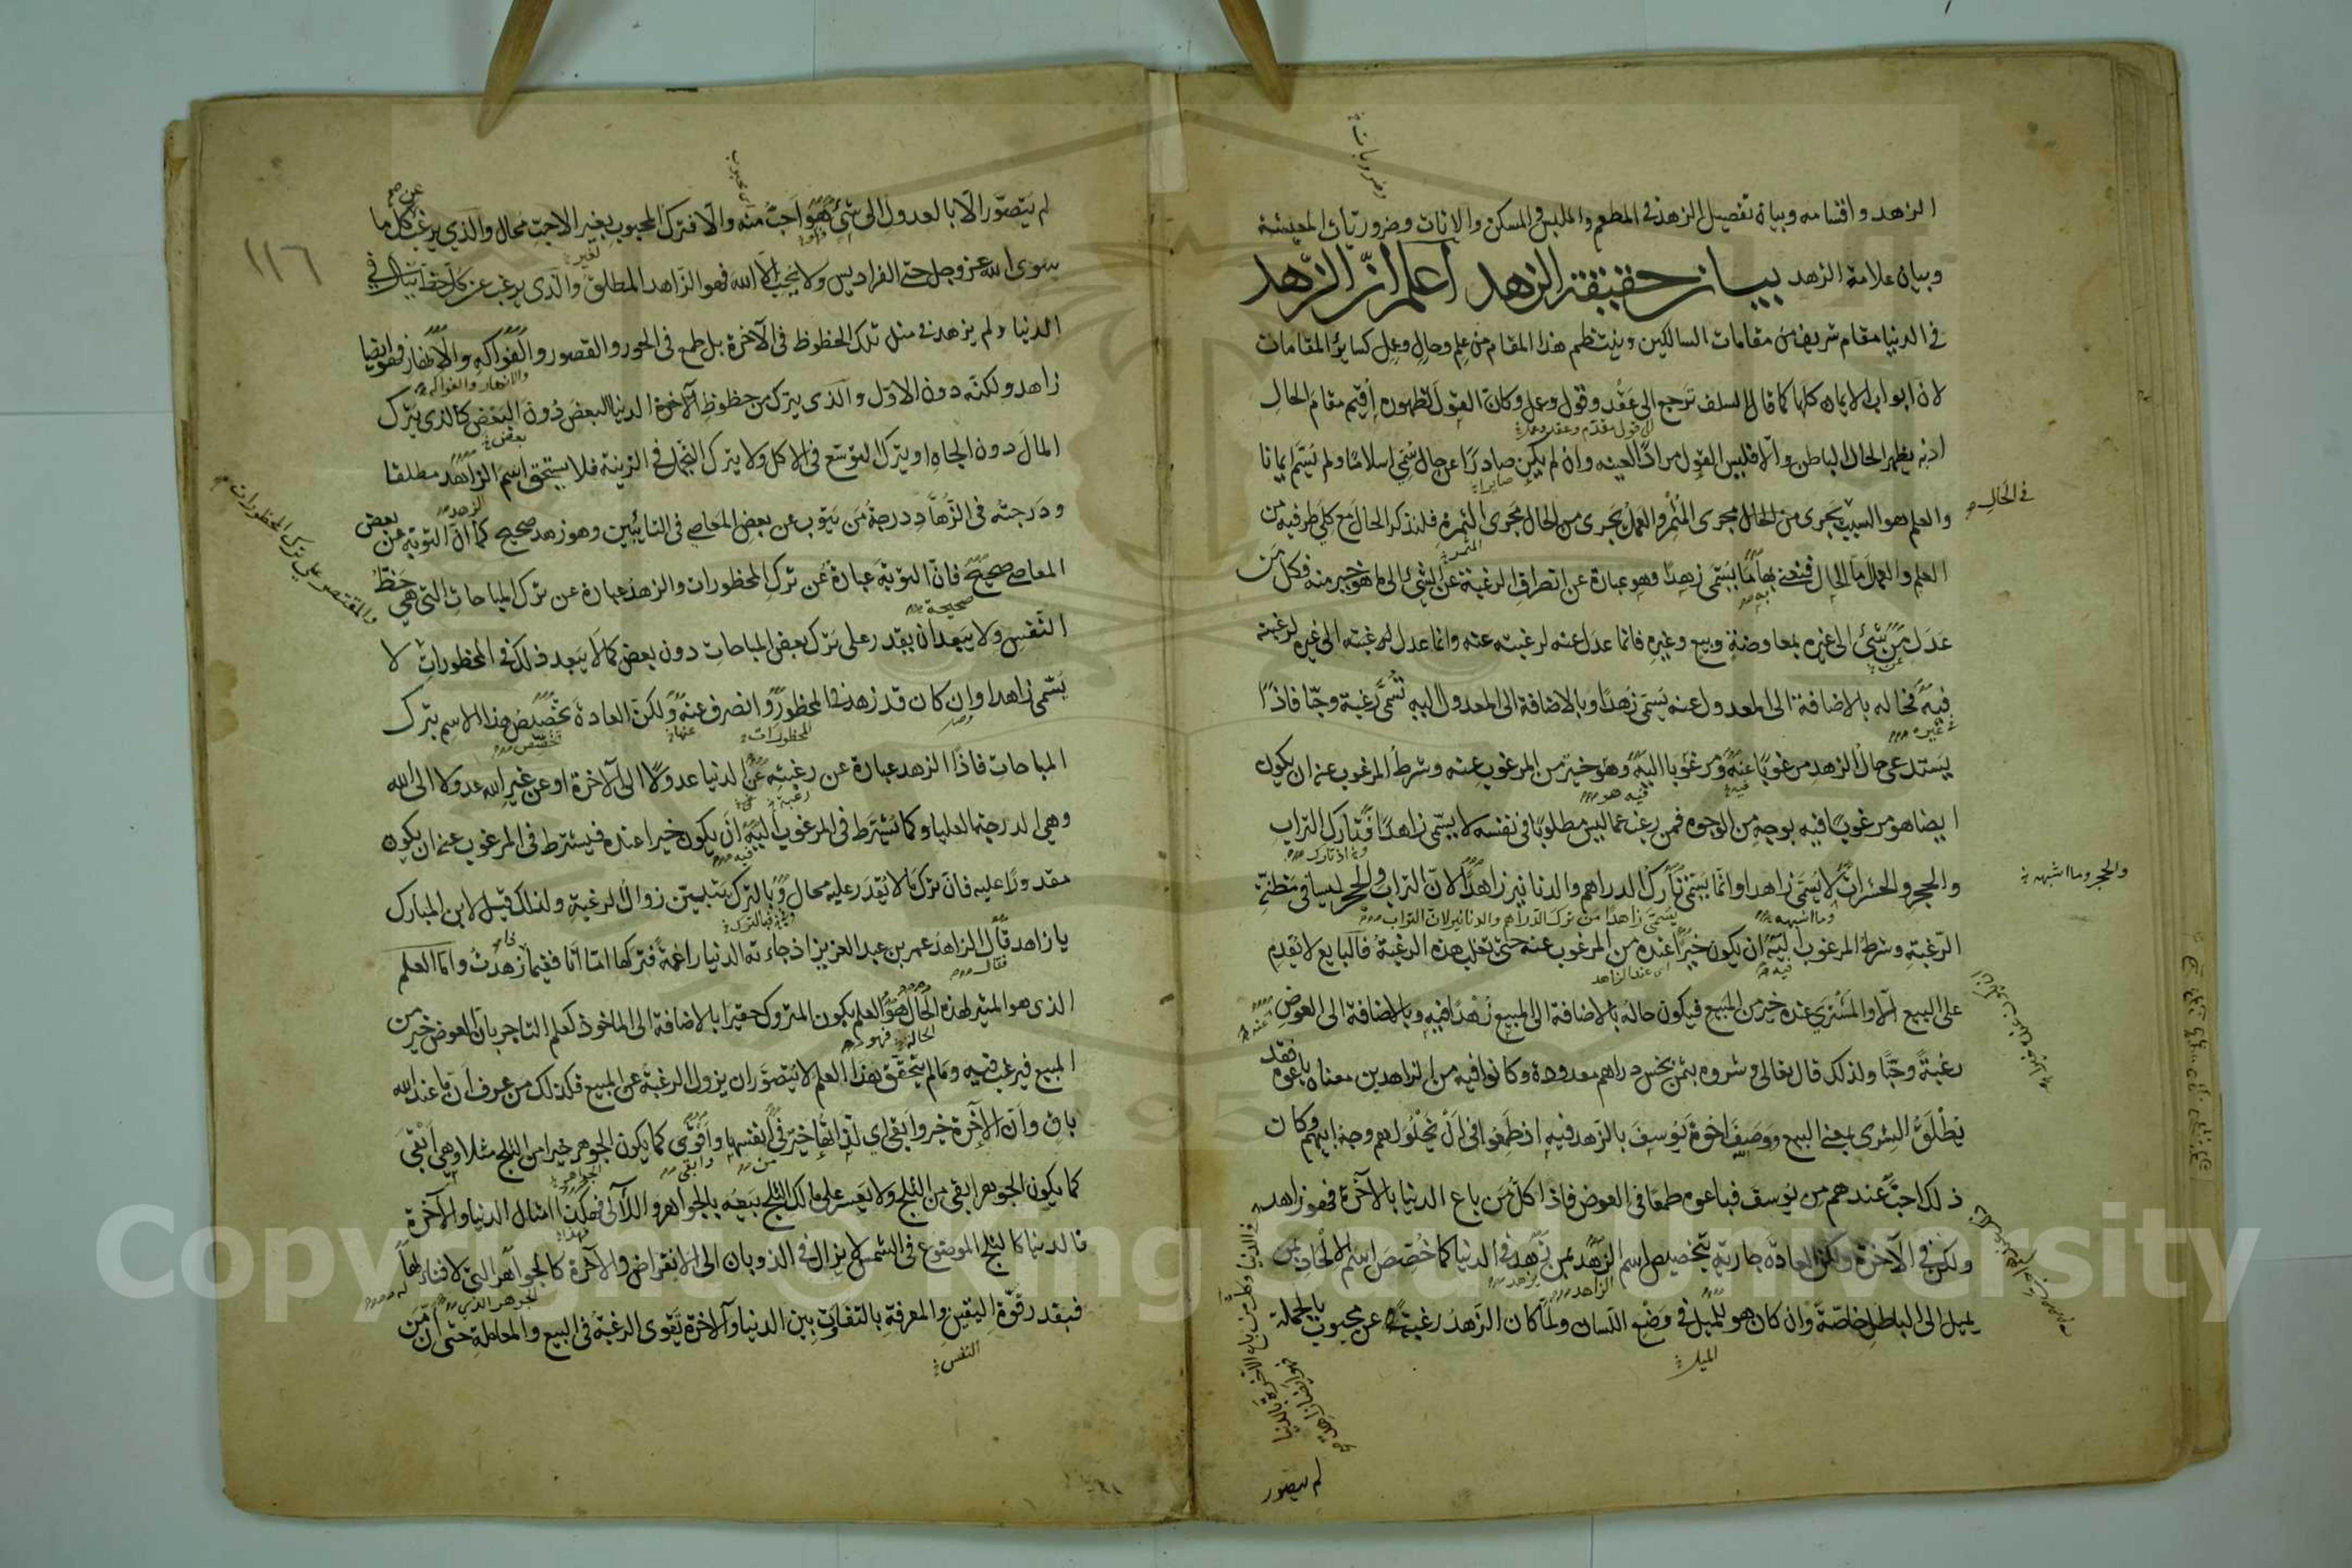 الزهد واقسامه وبيان تفصيل الزهد في المطعم والملبس والمسكن والاثاث وضروريات المعيشة
ضروريات
وبيان علامة الزهد بيان حقيقة الزهد اعلم ان الزهد
في الدنيا مقام شريف من مقامات السالكين وينتظم هذا المقام من علم وحال وعمل كسائر المقامات
لان ابواب الايمان كلها كما قال السلف ترجع الى عقد وقول وعمل وكان القول لظهوره اقيم مقام الحال
اذ به يظهر الحال الباطن والا فليس القول مرادا لعينه وان لم يكن صادرا عن حال سمي اسلاما ولم يسم ايمانا
والعلم هو السبب يجرى من الحال مجرى المثمر والعمل يجرى من الحال مجرى الثمرة فلنذكر الحال مع كلي طرفيه من
في الحال
العلم والعمل اما الحال فنعني بها ما يسمى زهدا وهو عبارة عن انصراف الرغبة عن الشئ الى ما هو خير منه فكل من
عدل من شئ الى غيره بمعاوضة وبيع وغيره فانما عدل عنه لرغبته عنه وانما عدل الى غيره لرغبته
فيه فحاله بالاضافة الى المعدول عنه يسمى زهدا وبالاضافة الى المعدول اليه تسمى رغبة وحبا فاذا
في غيره
يستدعى حال الزهد مرغوبا عنه ومرغوبا اليه وهو خير من المرغوب عنه وشرط المرغوب عنه ان يكون
فيه هو
ايضا هو مرغوبا فيه بوجه من الوجوه فمن رغب عما ليس مطلوبا في نفسه لا يسمى زاهدا فتارك التراب
والحجر والحشرات لا يسمى زاهدا وانما يسمى تارك الدراهم والدنانير زاهدا لان التراب والحجر ليسا في مظنة
والحجر وما اشبهه
وما اشبهه يسمى زاهدا من ترك الدراهم والدنانير لان التراب
الرغبة وشرط المرغوب اليه ان يكون خيرا عنده من المرغوب عنه حتى تغلب هذه الرغبة فالبايع لا يقدم
فيه اى عند الزاهد
على البيع الا والمشترى عنده خير من المبيع فيكون حاله بالاضافة الى المبيع زهدا فيه وبالاضافة الى العوض
رغبة وحبا ولذلك قال تعالى وشروه بثمن بخس دراهم معدودة وكانوا فيه من الزاهدين معناه باعوه فقد
يطلق الشرى بمعنى البيع ووصف اخوة يوسف بالزهد فيه اذ طمعوا في ان يخلو لهم وجه ابيهم وكان
ذلك احب عندهم من يوسف فباعوه طمعا في العوض فاذا كل من باع الدنيا بالآخرة فهو زاهد
ولكن في الآخرة ولكن العادة جارية بتخصيص اسم الزهد بمن يزهد في الدنيا كما خصص اسم الالحاد بمن
يميل الى الباطل خاصة وان كان هو للميل في وضع اللسان ولما كان الزهد رغبة عن محبوب بالجملة
الميل
لم يتصور
١١٦
لم يتصور الا بالعدول الى شئ هو احب منه والا فترك المحبوب بغير الاحب محال والذي يرغب عن كل ما
سوى الله عز وجل حتى الفراديس ولا يحب الا الله فهو الزاهد المطلق والذى يرغب عن كل حظ ينال في
الدنيا ولم يزهد في مثل تلك الحظوظ في الآخرة بل طمع في الحور والقصور والفواكه والانهار فهو ايضا
والانهار والفواكه
زاهد ولكنه دون الاول والذى يترك من حظوظ الدنيا البعض دون البعض كالذى يترك
بعض
المال دون الجاه او يترك التوسع في الاكل ولا يترك التجمل في الزينة فلا يستحق اسم الزاهد مطلقا
ودرجته في الزهاد درجة من يتوب عن بعض المعاصي في التائبين وهو زهد صحيح كما ان التوبة عن بعض
المعاصي صحيح فان التوبة عبارة عن ترك المحظورات والزهد عبارة عن ترك المباحات التي هي حظ
والمقتصر على ترك المحظورات
صحيحة
النفس ولا يبعد ان يقدر على ترك بعض المباحات دون بعض كما لا يبعد ذلك في المحظورات لا
يسمى زاهدا وان كان قد زهد في المحظور وانصرف عنه ولكن العادة تخصص هذا الاسم بترك
المحظورات عنها تخصص
المباحات فاذا الزهد عبارة عن رغبته عن الدنيا عدولا الى الآخرة او عن غير الله عدولا الى الله
وهي الدرجة العليا وكما يشترط في المرغوب اليه ان يكون خيرا عنده فيشترط في المرغوب عنه ان يكون
فيه
مقدورا عليه فان ترك ما لا يقدر عليه محال وبالترك يتبين زوال الرغبة ولذلك قيل لابن المبارك
يا زاهد قال الزاهد عمر بن عبد العزيز اذ جاءته الدنيا راغمة فتركها اما انا ففيما زهدت واما العلم
فقال
الذى هو المثمر لهذه الحال هو العلم بكون المتروك حقيرا بالاضافة الى الماخوذ كعلم التاجر بان العوض خير من
المبيع فيرغب فيه وما لم يتحقق هذا العلم لا يتصور ان يزول الرغبة عن المبيع فكذلك من عرف ان ما عند الله
باق وان الآخرة خير وابقى اي لذاتها خير في انفسها واقوى كما يكون الجوهر خيرا من الثلج مثلا وهي ابقى
كما يكون الجوهر ابقى من الثلج ولا يعسر على مالك الثلج بيعه بالجواهر واللآلي فهكذا مثال الدنيا والآخرة
فالدنيا كالثلج الموضوع في الشمس لا يزال في الذوبان الى الانقراض والآخرة كالجواهر التي لا فناء لها
فبقدر قوة اليقين والمعرفة بالتفاوت بين الدنيا والآخرة تقوى الرغبة في البيع والمعاملة حتى ان من
النفس
Copyright © King Saud University